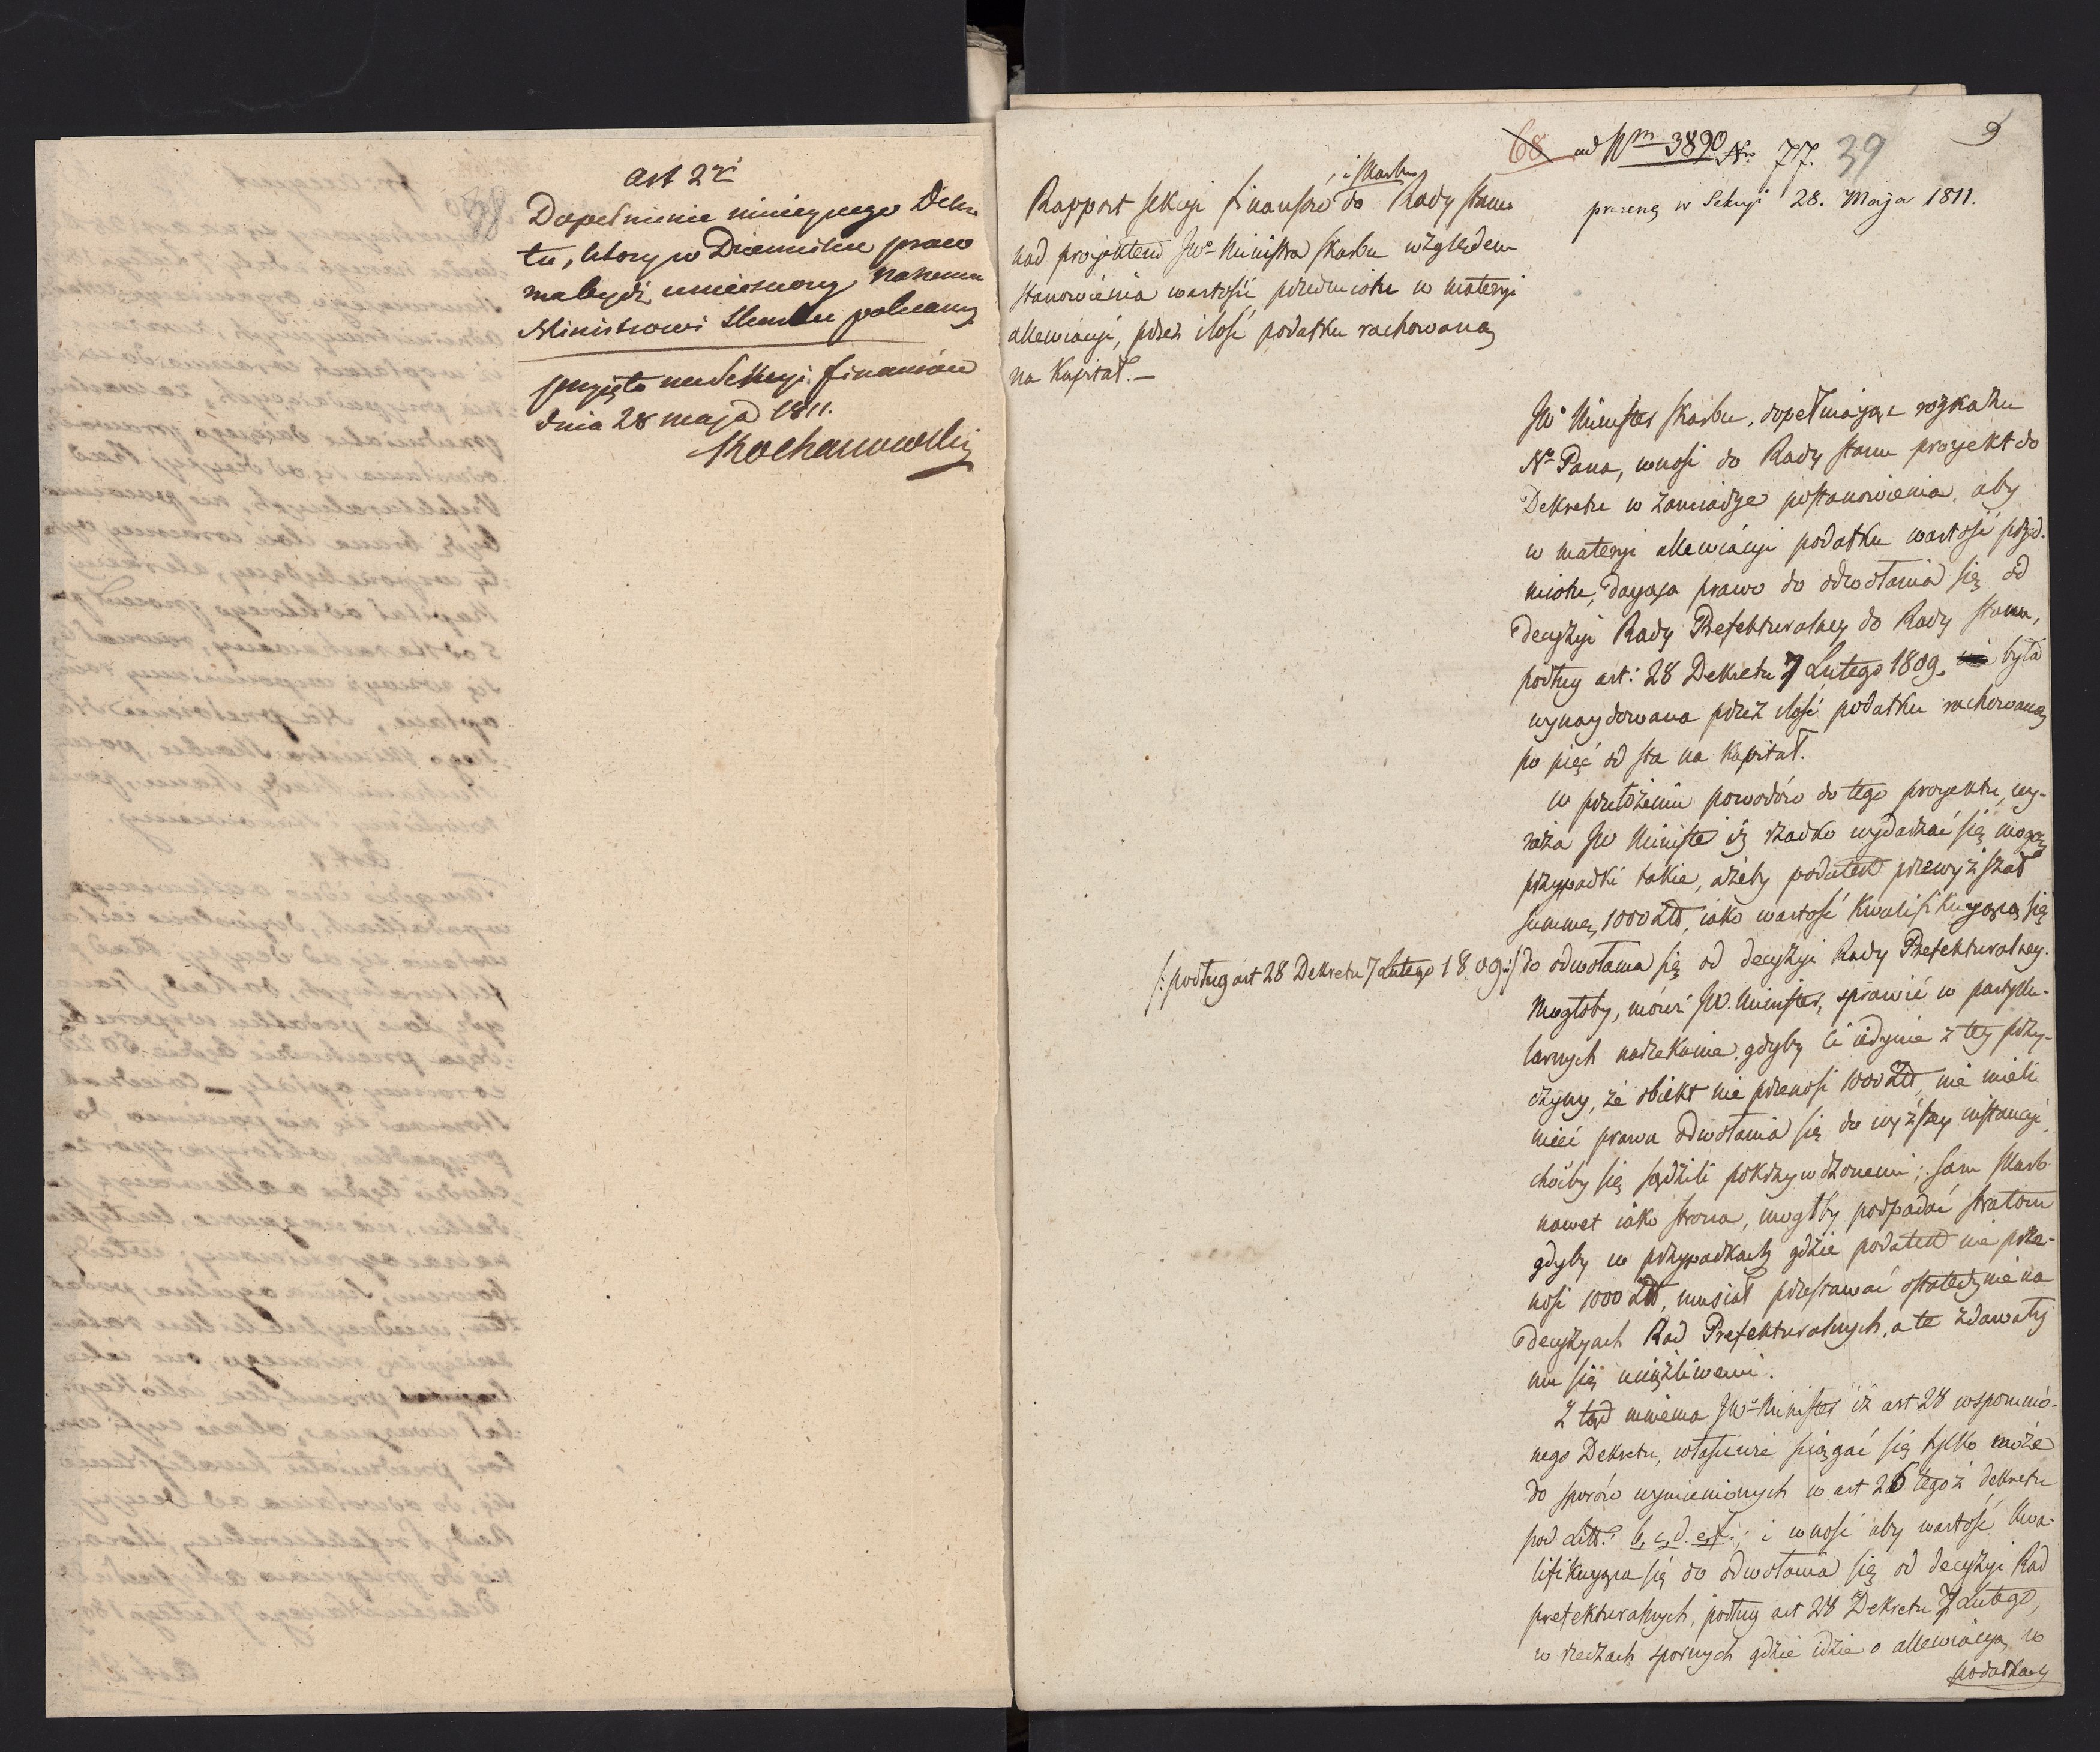 art 2i
Dopełnienie ninieyszego Dekre
tu, ktory w Dzienniku praw
ma bydź umieszczony Naszemu
Ministrowi Skarbu polecamy
przyięto na Sekcyi finansow
dnia 28 maja 1811.
Kochanowski
68 ad Nrm 3890 Nro 77. 39
9
prezen. w Sekcyi 28. Maja 1811.
i Skarbu
Rapport Sekcyi finansów do Rady Stanu
nad projektem JWo Ministra Skarbu względem
stanowienia wartości przedmiotu w materyi
allewiacyi, przez ilość podatku rachowaną
na Kapitał. —
JWo Minister Skarbu, dopełniając rozkazu
No Pana, wnosi do Rady Stanu projekt do
Dekretu w zamiarze postanowienia, aby
w materyi allewiacyi podatku wartość przed-
miotu, dająca prawo do odwołania się od
decyzyi Rady Prefekturalney do Rady Stanu,
podług art: 28 Dekretu 7 Lutego 1809. była
wynaydowana przez ilość podatku rachowaną
po pięć od sta na Kapitał.
W przełożeniu powodów do tego projektu, wy-
raża JW Minister iż rzadko wydarzać się mogą
przypadki takie, ażeby podatek przewyższał
summę 1000 Złł, iako wartość kwalifikującą się
/: podług art 28 Dekretu 7 Lutego 1809 :/ do odwołania się od decyzyi Rady Prefekturalney.
Mogłoby, mówi JW. Minister, sprawić w partyku-
larnych narzekanie, gdyby ci iedynie z tey przy-
czyny, że obiekt nie przenosi 1000 Złł, nie mieli
mieć prawa odwołania się do wyższey instancyi,
choćby się sądzili pokrzywdzonemi; sam Skarb
nawet iako strona, mogłby podpadać stratom
gdyby w przypadkach gdzie podatek nie prze-
nosi 1000 Złł, musiał przestawać ostatecznie na
decyzyach Rad Prefekturalnych, a te zdawały
mu się uciążliwemi.
Z tąd mniema JWo Minister iż art 28 wspomnio-
nego Dekretu, właściwie ściągać się tylko może
do sporów wymienionych w art 26 tegoż dekretu
pod Litt. b, c, d. e, f.; i wnosi aby wartość kwa-
lifikująca się do odwołania się od decyzyi Rad
prefekturalnych, podług art 28 Dekretu 7 Lutego,
w rzeczach spornych gdzie idzie o allewiacyą w
podatkach